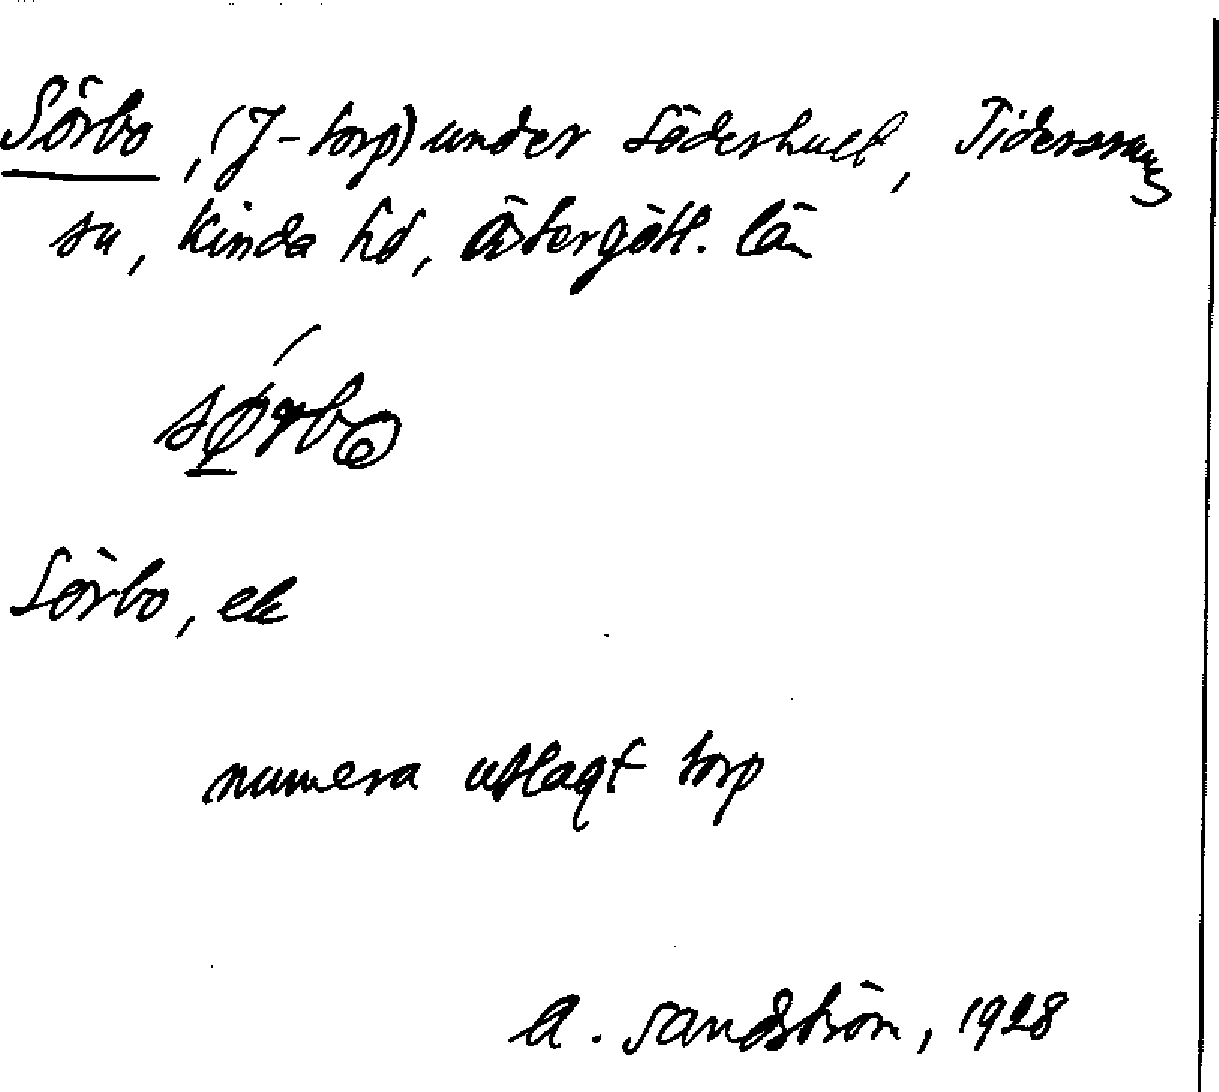 Sörbo, (J-torp) under Söderhult, Tidersrums
sn, Kinda hd, Östergötl. län
Sörbo, ek
numera utlagt torp
A. Sandström, 1928